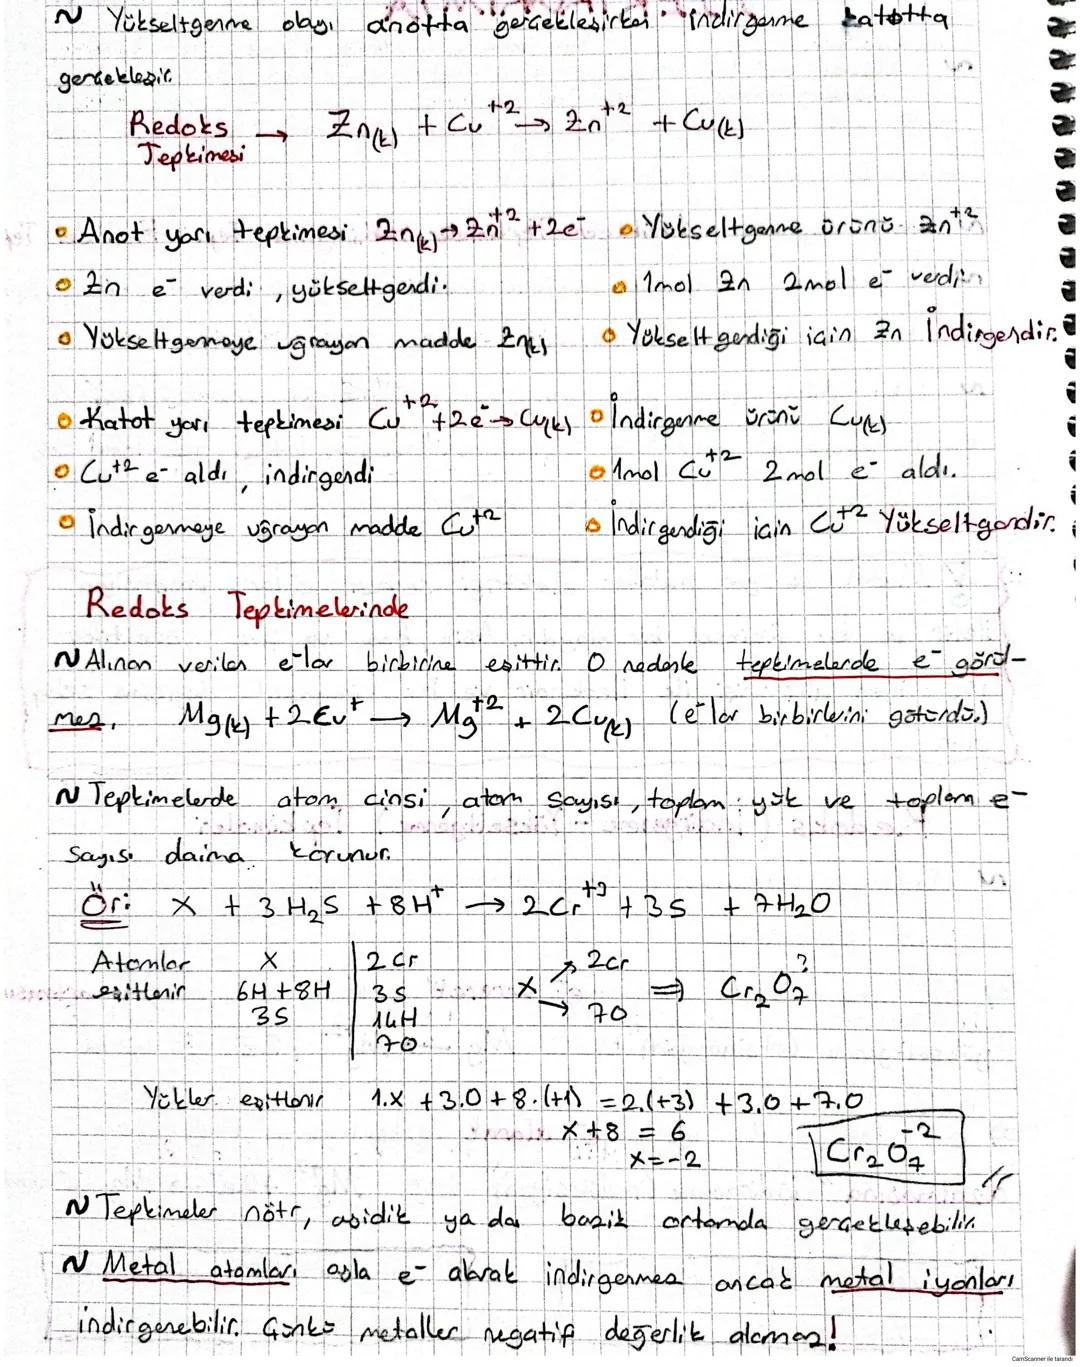 ~ Yükseltgenme olayı anotta gerçekleşirken indirgenme katotta
gerçekleşir.
Redoks Tepkimesi → Zn(k) + Cu⁺² → Zn⁺² + Cu(k)
• Anot yarı tepkimesi Zn(k) → Zn⁺² + 2e⁻ • Yükseltgenme ürünü Zn⁺²
• Zn e⁻ verdi, yükseltgendi. • 1mol Zn 2mol e⁻ verdi.
• Yükseltgenmeye uğrayan madde Zn(k) • Yükseltgendiği için Zn İndirgendir.
• Katot yarı tepkimesi Cu⁺² + 2e⁻ → Cu(k) • İndirgenme ürünü Cu(k)
• Cu⁺² e⁻ aldı, indirgendi • 1mol Cu⁺² 2mol e⁻ aldı.
• İndirgenmeye uğrayan madde Cu⁺² • İndirgendiği için Cu⁺² Yükseltgendir.
Redoks Tepkimelerinde
~ Alınan verilen e⁻lar birbirine eşittir. O nedenle tepkimelerde e⁻ görül-
mez. Mg(k) + 2Cu⁺ → Mg⁺² + 2Cu(k) (e⁻lar birbirlerini götürdü.)
~ Tepkimelerde atom cinsi, atom sayısı, toplam yük ve toplam e⁻
sayısı daima korunur.
Ör: X + 3H₂S + 8H⁺ → 2Cr⁺³ + 3S + 7H₂O
Atomlar X | 2Cr X ↗ 2Cr ⇒ Cr₂O₇?
eşitlenir 6H + 8H | 3S → 7O
3S | 14H
7O
Yükler eşitlenir 1.x + 3.0 + 8.(+1) = 2.(+3) + 3.0 + 7.0
x + 8 = 6
x = -2 Cr₂O₇⁻²
~ Tepkimeler nötr, asidik ya da bazik ortamda gerçekleşebilir.
~ Metal atomları asla e⁻ alarak indirgenmez ancak metal iyonları
indirgenebilir. Çünkü metaller negatif değerlik alamaz!
CamScanner ile tarandı